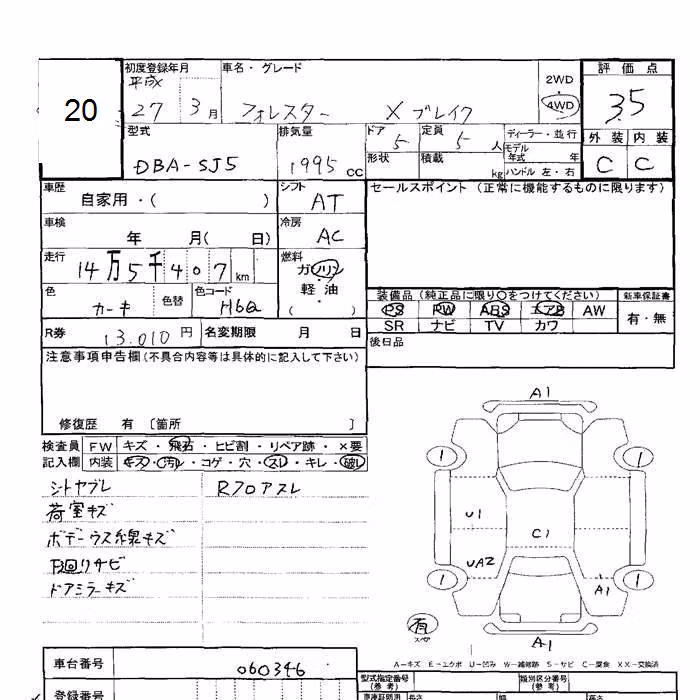 20
初度登録年月
平成
27 3月
車名・グレード
フォレスター X ブレイク
2WD
・
4WD
評価点
3.5
外装 内装
C C
型式
DBA-SJ5
排気量
1995 cc
ドア 5
定員 5 人
形状
積載 kg
ディーラー・並行
モデル年式 年
ハンドル 左・右
車歴
自家用・( )
シフト
AT
セールスポイント (正常に機能するものに限ります)
車検
年 月( 日)
冷房
AC
走行
14万5千407km
燃料
ガソリン
軽油
( )
色
カーキ
色替
色コード
H6Q
装備品 (純正品に限り○をつけてください)
PS PW ABS エアB AW
SR ナビ TV カワ
新車保証書
有・無
R券 13,010 円
名変期限 月 日
後日品
注意事項申告欄(不具合内容等は具体的に記入して下さい)
修復歴 有 〔箇所 〕
検査員
記入欄
FW キズ・飛石・ヒビ割・リペア跡・×要
内装 キズ・汚レ・コゲ・穴・スレ・キレ・破レ
シートヤブレ
荷室キズ
ボデーウス線キズ
下回りサビ
ドアミラーキズ
A1
1
1
U1
C1
UA2
1
A1
1
有
スペア
A1
A-キズ E-エクボ U-凹み W-補修跡 S-サビ C-腐食 XX-交換済
車台番号
060346
登録番号
型式指定番号
(参考)
類別区分番号
(参考)
長さ
幅
高さ